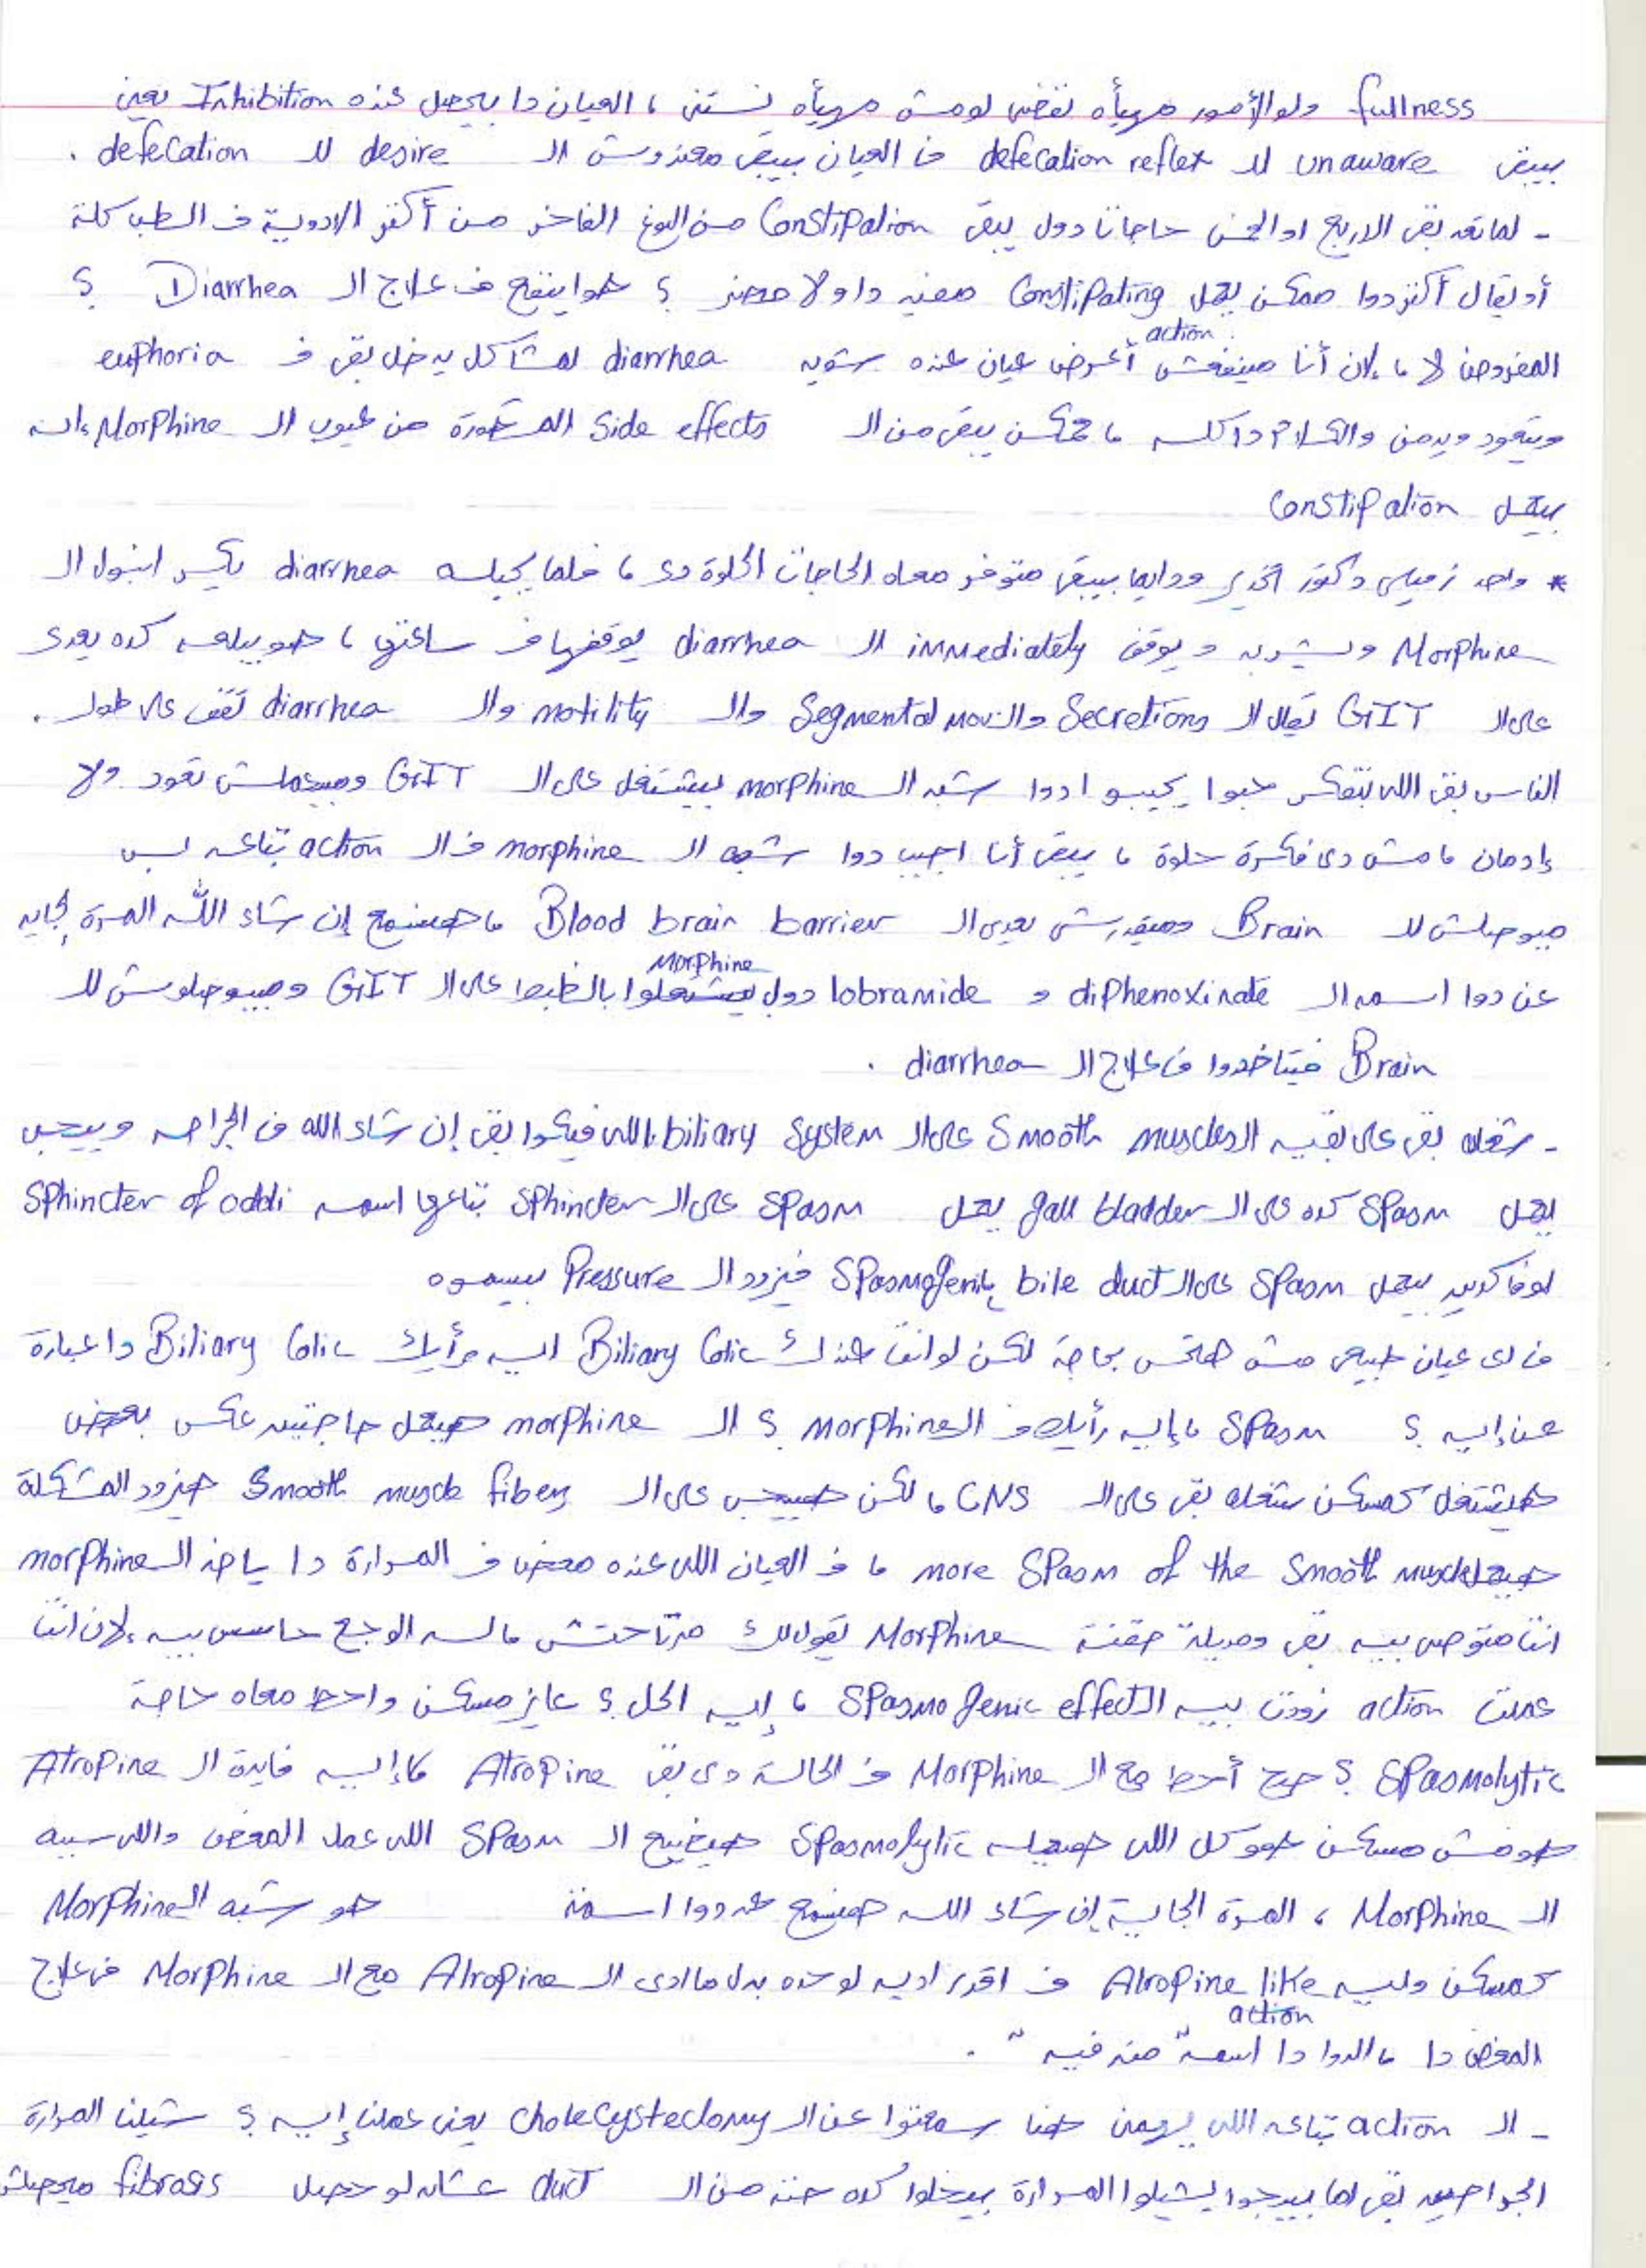 fullness ولو الأمور مهيأه نقضى لو مش مهيأه نستنى ، العيان دا بيحصل عنده Inhibition يعنى
بيبقى unaware للـ defecation reflex فـ العيان بيبقى معندوش الـ desire للـ defecation .
- لما تعد بقى الاربع او الخمس حاجات دول يبقى Constipation من النوع الفاخر من أكتر الادوية فـ الطب كله
أو يقال أكتر دوا ممكن يعمل Constipating action مفيد دا ولا مضر ؟ هو اينفع فـ علاج الـ Diarrhea ؟
المفروض لا ، لان أنا مينفعش أعرض عيان عنده شوية diarrhea لمشاكل يدخل بقى فـ euphoria
ويتعود ويدمن والكلام دا كله ، ممكن يبقى من الـ Side effects المشهورة من عيوب الـ Morphine انه
بيعمل Constipation
* واحد زميلى دكتور تخدير ودايما بيبقى متوفر معاه الحاجات الحلوة دى ، فلما يجيله diarrhea يكسر امبول الـ
Morphine ويشربه ويوقف immediately الـ diarrhea يوقفها فـ ساعتها ، هو بيبلعه كده يعدى
على الـ GIT يقلل الـ Secretions والـ Segmental mov والـ motility والـ diarrhea تقف على طول .
الناس بقى اللى بتفكر حبوا يجيبوا دوا شبه الـ morphine بيشتغل على الـ GIT ومبيعملش تعود ولا
إدمان ، مش دى فكرة حلوة ، يبقى أنا اجيب دوا شبه الـ morphine فـ الـ action بتاعه بس
ميوصلش للـ Brain وميقدرش يعدى الـ Blood brain barrier ، هنسمع إن شاء الله المرة الجايه
عن دوا اسمه الـ diphenoxinate و lobramide دول Morphine بيشتغلوا بالظبط على الـ GIT ومبيوصلوش للـ
Brain فبتاخدوا فـ علاج الـ diarrhea .
- شغله بقى على بقيه الـ Smooth muscles على الـ biliary System اللى فيكوا بقى إن شاء الله فـ الجراحه وبييجى
يعمل Spasm كده على الـ gall bladder يعمل Spasm على الـ Sphincter بتاعها اسمه Sphincter of oddi
لو فاكرين بيعمل Spasm على الـ bile duct فيزود الـ Pressure بيسموه Spasmogenic
فـ اى عيان طبيعى مش هتحس بحاجة لكن لو انت عندك Biliary Colic ايه رأيك Biliary Colic دا عبارة
عن إيه ؟ Spasm ، إيه رأيك فـ الـ Morphine ؟ الـ morphine هيعمل حاجتين عكس بعض
هيشتغل كمسكن شغله بقى على الـ CNS ، لكن هييجى على الـ Smooth muscle fibers هيزود المشكلة
هيعمل more Spasm of the Smooth muscle ، فـ العيان اللى عنده مغص فـ المرارة دا ياخد الـ morphine
انت متوصى بيه بقى ومديله حقنة Morphine يقولك مرتاحتش ، لسه الوجع حاسس بيه ، لان انت
عملت action زودت بيه الـ Spasmogenic effect ، إيه الحل ؟ عايز مسكن واحط معاه حاجة
Spasmolytic ؟ صح أحط مع الـ Morphine فـ الحالة دى بقى Atropine ، إيه فايدة الـ Atropine
هو مش مسكن هو كل اللى هيعمله Spasmolytic هيضيع الـ Spasm اللى عمل المغص واللى سببه
الـ Morphine ، المرة الجاية إن شاء الله هنسمع عن دوا اسمه هو شبه الـ Morphine
كمسكن وليه Atropine like action فـ اقدر اديه لوحده بدل ما ادى الـ Atropine مع الـ Morphine فى علاج
المغص دا ، الدوا دا اسمه " منه فيه " .
- الـ action بتاعه اللى يهمنى هنا سمعتوا عن الـ cholecystectomy يعنى عملنا إيه ؟ شيلنا المرارة
الجراحين بقى لما بييجوا يشيلوا المرارة بيدخلوا كده حته من الـ duct عشان لو حصل fibrosis ميحصلش